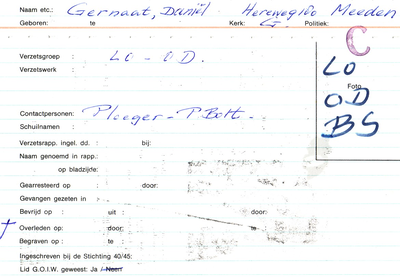 Naam etc.: Gernaat, Daniël Hereweg 130 Meeden
Geboren: te Kerk: G. Politiek:
C
Verzetsgroep : LO - OD.
LO
Verzetswerk :
Foto
OD
BS
Contactpersonen: Ploeger - P Bolt.
Schuilnamen :
Verzetsrapp. ingel. dd. : bij:
Naam genoemd in rapp.:
op bladzijde:
Gearresteerd op : door:
Gevangen gezeten in :
Bevrijd op : uit : door:
† Overleden op: door: te
Begraven op : te
Ingeschreven bij de Stichting 40/45:
Lid G.O.I.W. geweest: Ja / Neen